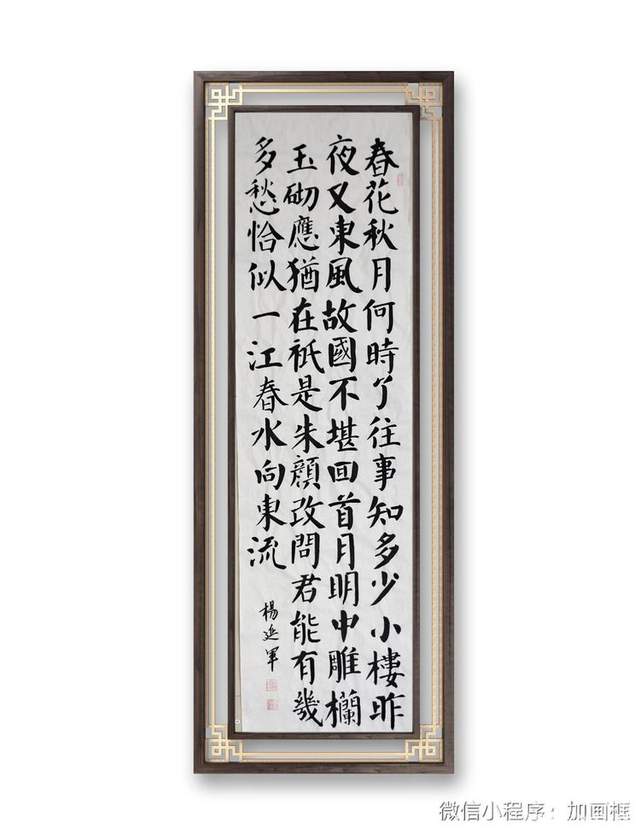 春花秋月何時了往事知多少小樓昨
夜又東風故國不堪回首月明中雕欄
玉砌應猶在祇是朱顔改問君能有幾
多愁恰似一江春水向東流
楊延軍
微信小程序：加画框